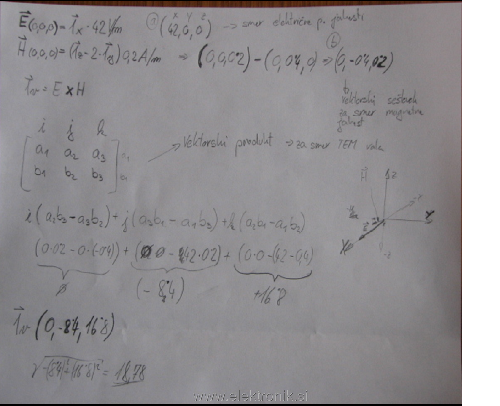 E(0,0,0) = 1x · 42 V/m (42,0,0) → smer električne p. jakosti
H(0,0,0) = (1z - 2·1y) 0,2 A/m ⇒ (0,0,0'2) - (0,0'4,0) ⇒ (0,-0'4,0'2)
1v = E × H
vektorski seštevek
za smer magnetne
jakosti
i j k
a1 a2 a3
b1 b2 b3
→ Vektorski produkt → za smer TEM vala
H
z
E
y
x
i(a2b3 - a3b2) + j(a3b1 - a1b3) + k(a1b2 -
(0·0'2 - 0·(-0'4)) + (0·0 - 42·0'2) + (
(-8'4)
+16'8
1v (0,-8'4,16'8)
√(-8'4)²+(16'8)² = 18,78
www.elektronik.si